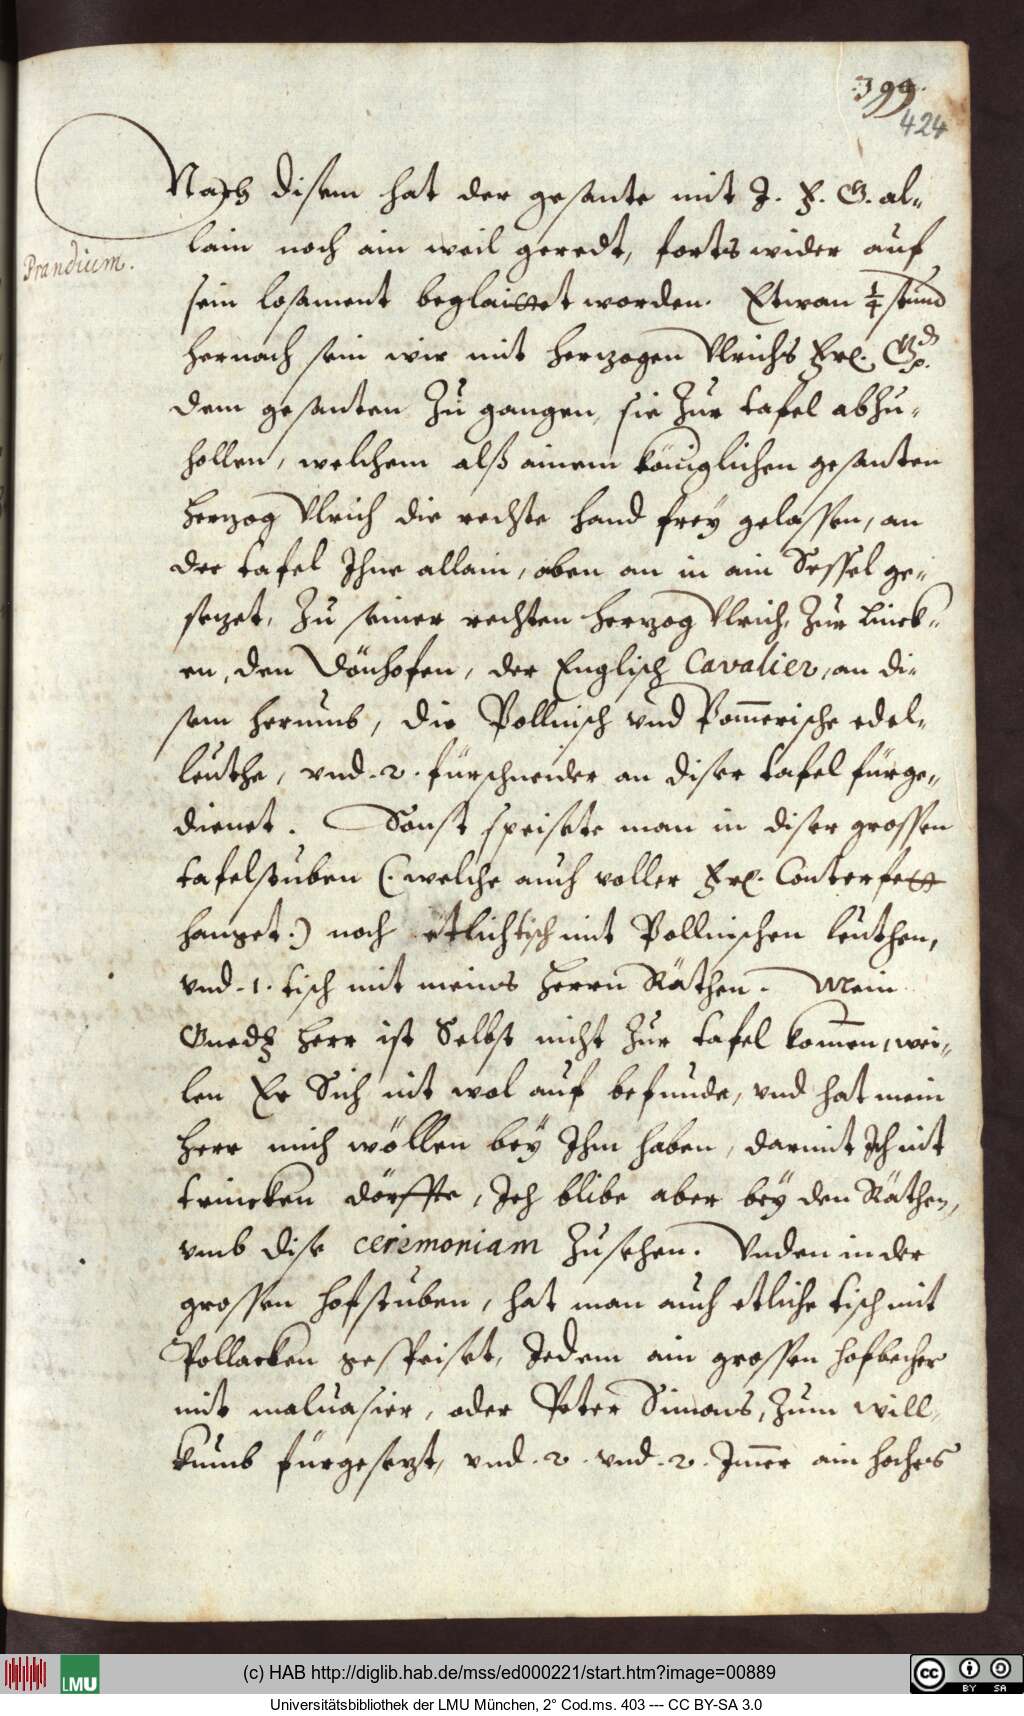 399.
424
Nach disem hat der gesante mit J. F. G. al-
lain noch ain weil geredt, forts wider auf
Prandium.
sein losament beglaittet worden. Etwan ¼ stund
hernach sein wir mit herzogen Vlrichs Frl. Gd.
dem gesanten Zu gangen, sie Zur tafel abhu-
hollen, welchem alß ainem königlichen gesanten
herzog Vlrich die rechte hand freÿ gelassen, an
der tafel Ihne allain, oben an in ain Sessel ge-
sezet, Zu seiner rechten herzog Vlrich, Zur Linck-
en, den Dönhofen, der Englisch Cavalier, an di-
sem herumb, die Pollnisch vnd Pom̄erische edel-
leuthe, vnd .2. fürschneider an diser tafel fürge-
dienet. Sonst speisete man in diser grossen
tafelstuben (. welche auch voller Frl. Conterfett
hanget .) noch etlich tisch mit Pollnischen leuthen,
vnd .1. tisch mit meins herrn Räthen. Mein
Gnedg herr ist Selbst nicht Zur tafel kom̄en, wei-
len Er Sich nit wol auf befunde, vnd hat mein
herr mich wöllen beÿ Ihm haben, darmit Ich nit
trincken dörffte, Ich blibe aber beÿ den Räthen,
vmb dise ceremoniam Zusehen. Vnden in der
grossen hofstuben, hat man auch etliche tisch mit
Pollacken gespeiset, Jedem ain grossen hofbecher
mit maluasier, oder Peter Simons, Zum will-
kumb fürgesezt, vnd .2. vnd .2. Im̄er ain hoches
(c) HAB http://diglib.hab.de/mss/ed000221/start.htm?image=00889
LMU
cc BY SA
Universitätsbibliothek der LMU München, 2° Cod.ms. 403 --- CC BY-SA 3.0